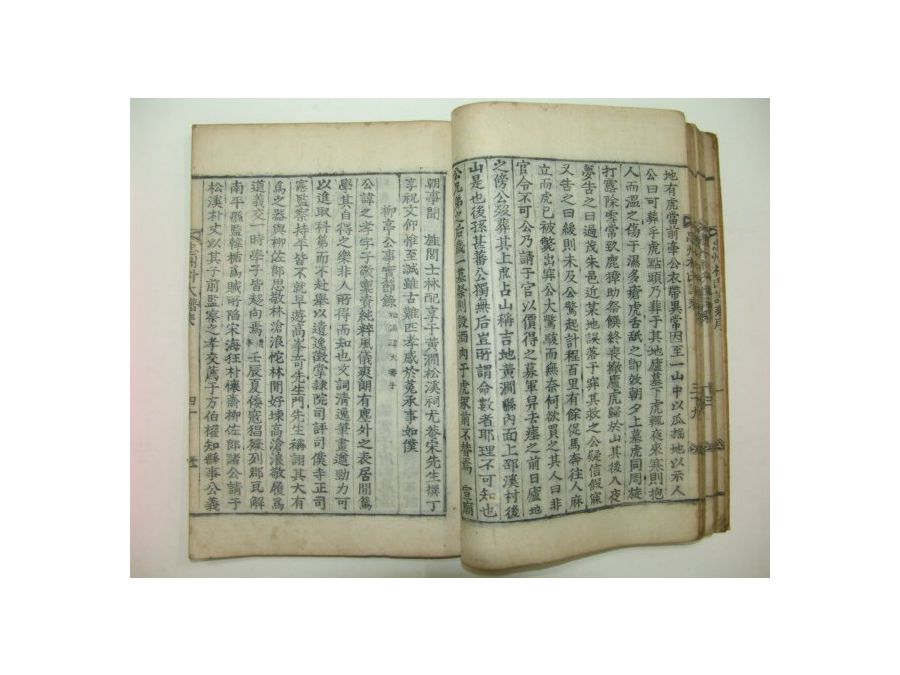 地有虎當前牽公衣帶異常因至一山中以瓜搯地以示人
公曰可葬乎虎點頭乃葬于其地廬墓下虎輒夜來寒則抱
人而溫之傷于濕多瘡虎舌舐之卽效朝夕上墓虎同周旋
打露除雪常敺鹿獐助祭饌終喪撤廬虎歸於山其後入夜
夢告之曰過茂朱邑近某地誤落于穽其救之公疑信假寐
又告之曰緩則未及公驚起計程百里有餘促馬奔往人麻
立而虎已被斃出穽公大驚駭而無奈何欲買之其人曰非
官令不可公乃請于官以價得之募軍舁去瘞之前日廬地
之傍公歿葬其上虎占山稱吉地黃澗縣內面上部溪村後
山是也後孫甚蕃公獨無后豈所謂命數者耶理不可知也
公兄弟之
一墓祭則設酒肉于虎
前不替焉 宣廟
朝事聞 旌閭士林配享于黃澗松溪祠尤菴宋先生撰丁
享祝文仰惟至誠雖古難匹孝感於菟承事如僕
柳亭公事實舊錄
公諱之孝字子敬稟淸純粹風儀爽朗有塵外之表居閒篤
學其自得之樂非人所得而知也文詞淸逸筆畫遒勁力可
以進取科第而不赴擧以遺逸徵掌隷院司評司僕寺正司
憲監察持平皆不就早遊高峯奇先生門先生稱詡其大有
爲之器與柳佐郎思敬林滄浪㤞林間好堜高滄浪敬履爲
道義交一時學子皆趍向焉 壬辰夏倭寇猖獗列郡瓦解
南平縣監韓楯爲賊所陷宋海狂朴懷齋柳佐郎諸公請于
松溪朴丈以其子前監察之孝交薦于方伯權知縣事公義
四十
三十九